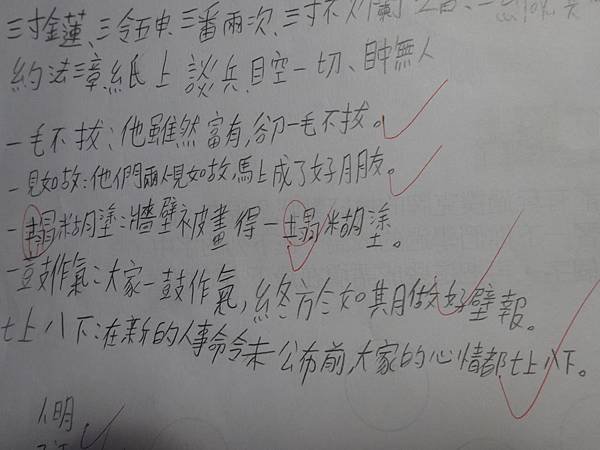 三寸金蓮、三令五申、三番兩次、三寸不
約法三章、紙上談兵、目空一切、目中無人
一毛不拔：他雖然富有，卻一毛不拔。
一見如故：他們兩人一見如故，馬上成了好朋友。
一塌糊塗：牆壁被畫得一塌糊塗。
一鼓作氣：大家一鼓作氣，終於如期做好壁報。
七上八下：在新的人事命令未公布前，大家的心情都七上八下。
明